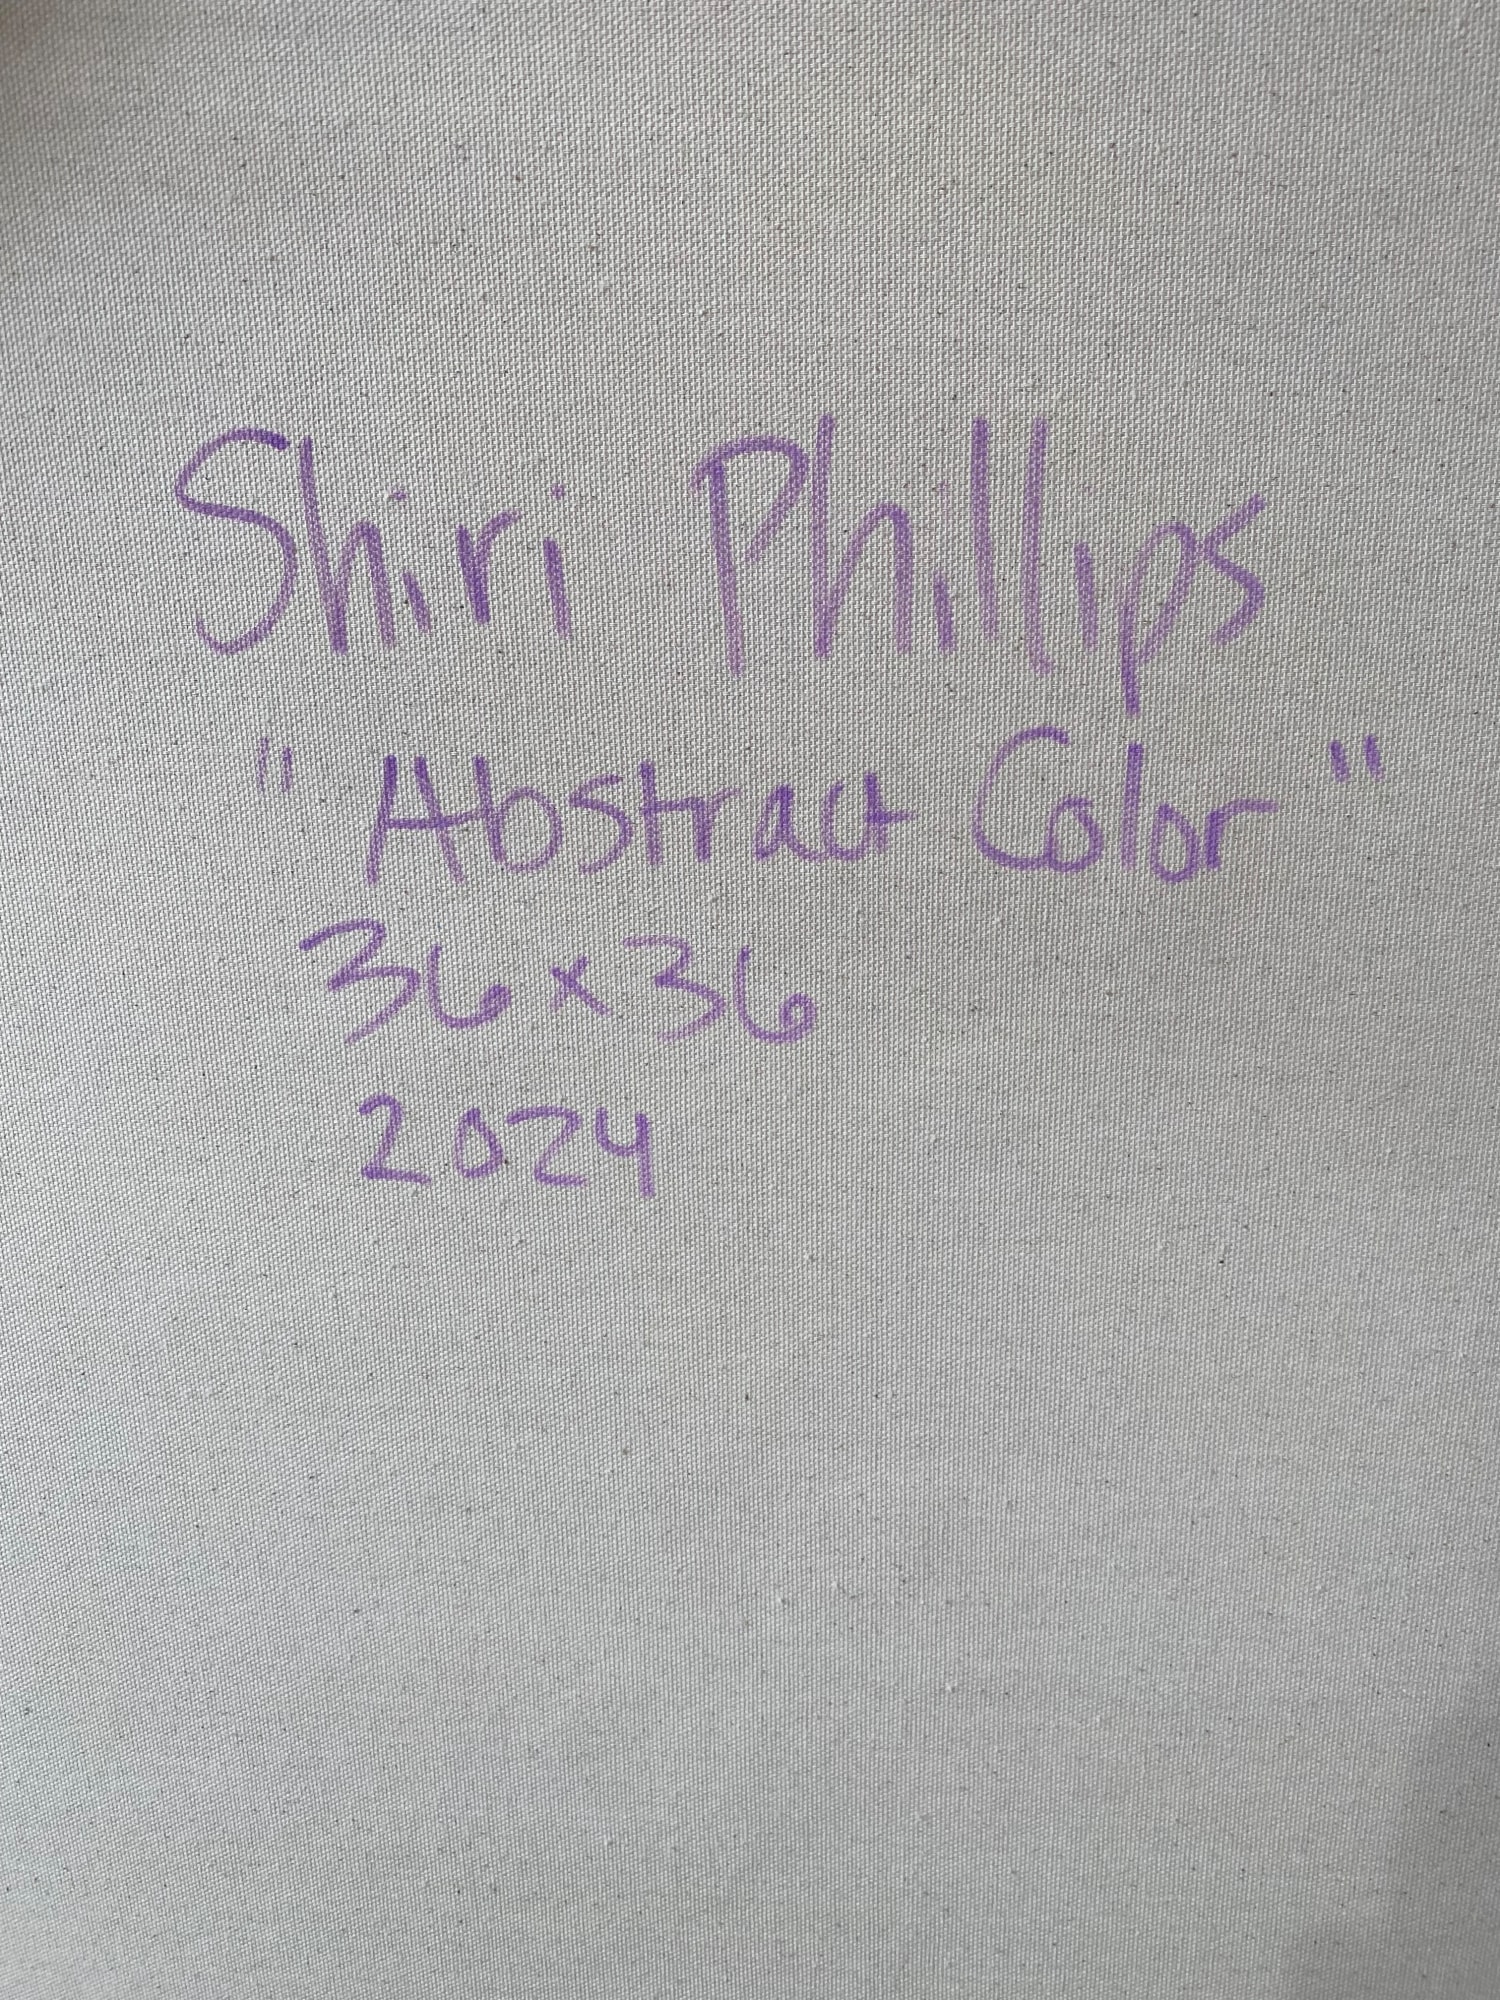 Shiri Phillips
"Abstract Color"
36 x 36
2024